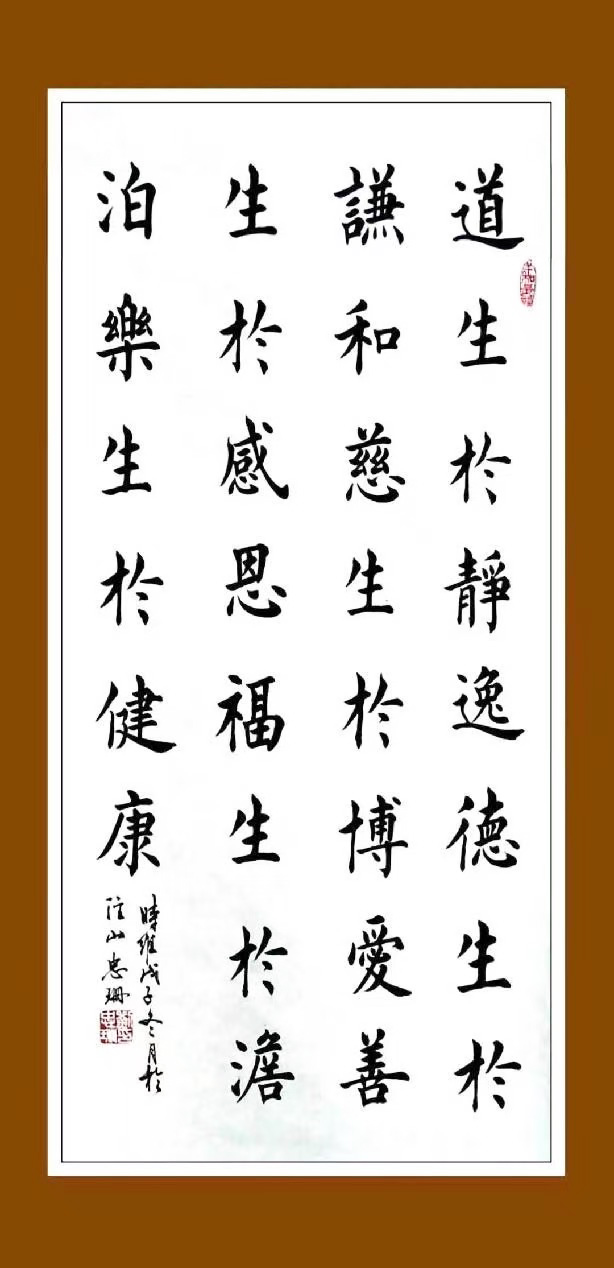 道生於靜逸德生於
謙和慈生於博愛善
生於感恩福生於澹
泊樂生於健康
時維戊子冬月於
山忠珊